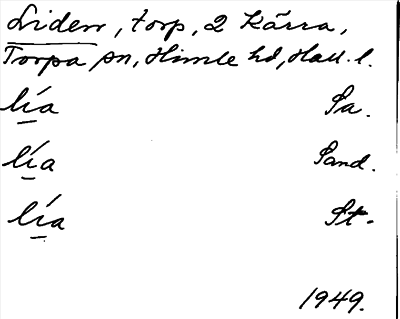 Liden, torp, 2 Kärra,
Torpa sn, Himle hd, Hall. l.
lí̱a Sa.
lí̱a Sand.
lí̱a St.
1949.